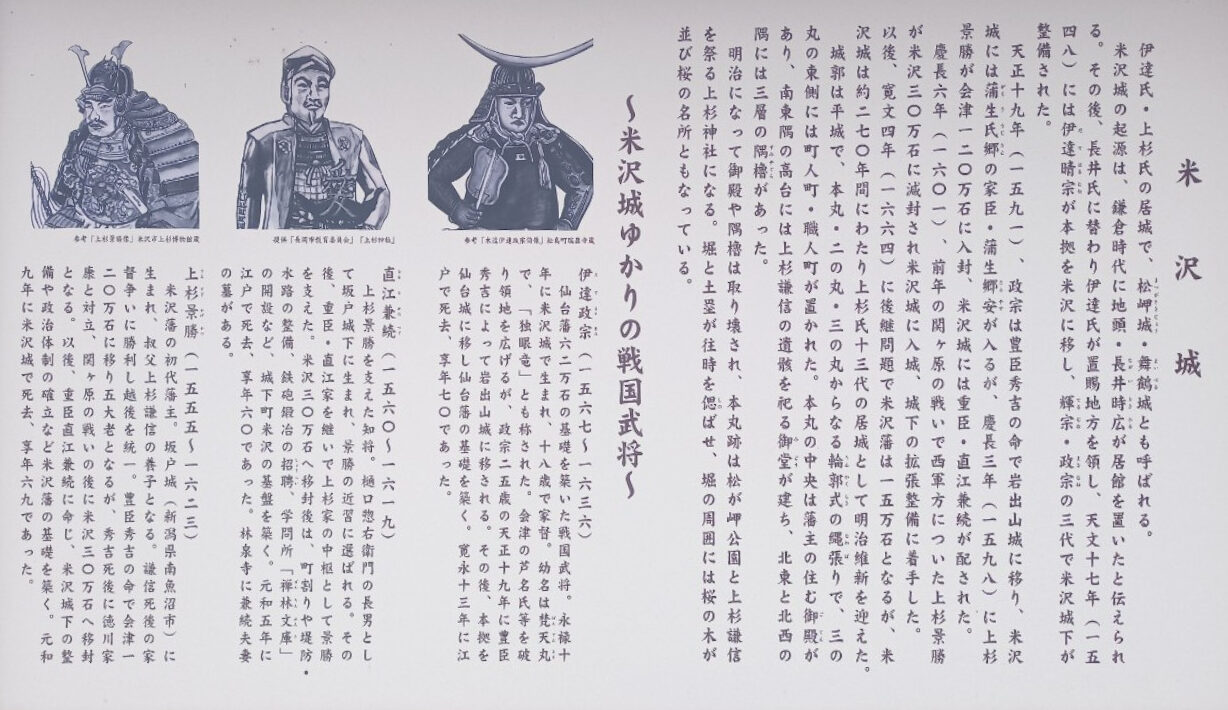 米沢城
伊達氏・上杉氏の居城で、松岬城・舞鶴城とも呼ばれる。
米沢城の起源は、鎌倉時代に地頭・長井時広が居館を置いたと伝えられ
る。その後、長井氏に替わり伊達氏が置賜地方を領し、天文十七年（一五
四八）には伊達晴宗が本拠を米沢に移し、輝宗・政宗の三代で米沢城下が
整備された。
天正十九年（一五九一）、政宗は豊臣秀吉の命で岩出山城に移り、米沢
城には蒲生氏郷の家臣・蒲生郷安が入るが、慶長三年（一五九八）に上杉
景勝が会津一二〇万石に入封、米沢城には重臣・直江兼続が配された。
慶長六年（一六〇一）、前年の関ヶ原の戦いで西軍方についた上杉景勝
が米沢三〇万石に減封され米沢城に入城、城下の拡張整備に着手した。
以後、寛文四年（一六六四）に後継問題で米沢藩は一五万石となるが、米
沢城は約二七〇年間にわたり上杉氏十三代の居城として明治維新を迎えた。
城郭は平城で、本丸・二の丸・三の丸からなる輪郭式の縄張りで、三の
丸の東側には町人町・職人町が置かれた。本丸の中央は藩主の住む御殿が
あり、南東隅の高台には上杉謙信の遺骸を祀る御堂が建ち、北東と北西の
隅には三層の隅櫓があった。
明治になって御殿や隅櫓は取り壊され、本丸跡は松が岬公園と上杉謙信
を祭る上杉神社になる。堀と土塁が往時を偲ばせ、堀の周囲には桜の木が
並び桜の名所ともなっている。
～米沢城ゆかりの戦国武将～
参考「木造伊達政宗倚像」松島町瑞巌寺蔵
伊達政宗（一五六七～一六三六）
仙台藩六二万石の基礎を築いた戦国武将。永禄十
年に米沢城で生まれ、十八歳で家督。幼名は梵天丸
で、「独眼竜」とも称された。会津の芦名氏等を破
り領地を広げるが、政宗二五歳の天正十九年に豊臣
秀吉によって岩出山城に移される。その後、本拠を
仙台城に移し仙台藩の基礎を築く。寛永十三年に江
戸で死去、享年七〇であった。
提供「長岡市教育委員会」
直江兼続（一五六〇～一六一九）
上杉景勝を支えた知将。樋口惣右衛門の長男とし
て坂戸城下に生まれ、景勝の近習に選ばれる。その
後、重臣・直江家を継いで上杉家の中枢として景勝
を支えた。米沢三〇万石へ移封後は、町割りや堤防・
水路の整備、鉄砲鍛冶の招聘、学問所「禅林文庫」
の開設など、城下町米沢の基盤を築く。元和五年に
江戸で死去、享年六〇であった。林泉寺に兼続夫妻
の墓がある。
参考「上杉景勝像」米沢市上杉博物館蔵
上杉景勝（一五五五～一六二三）
米沢藩の初代藩主。坂戸城（新潟県南魚沼市）に
生まれ、叔父上杉謙信の養子となる。謙信死後の家
督争いに勝利し越後を統一。豊臣秀吉の命で会津一
二〇万石に移り五大老となるが、秀吉死後に徳川家
康と対立、関ヶ原の戦いの後に米沢三〇万石へ移封
となる。以後、重臣直江兼続に命じ、米沢城下の整
備や政治体制の確立など米沢藩の基礎を築く。元和
九年に米沢城で死去、享年六九であった。